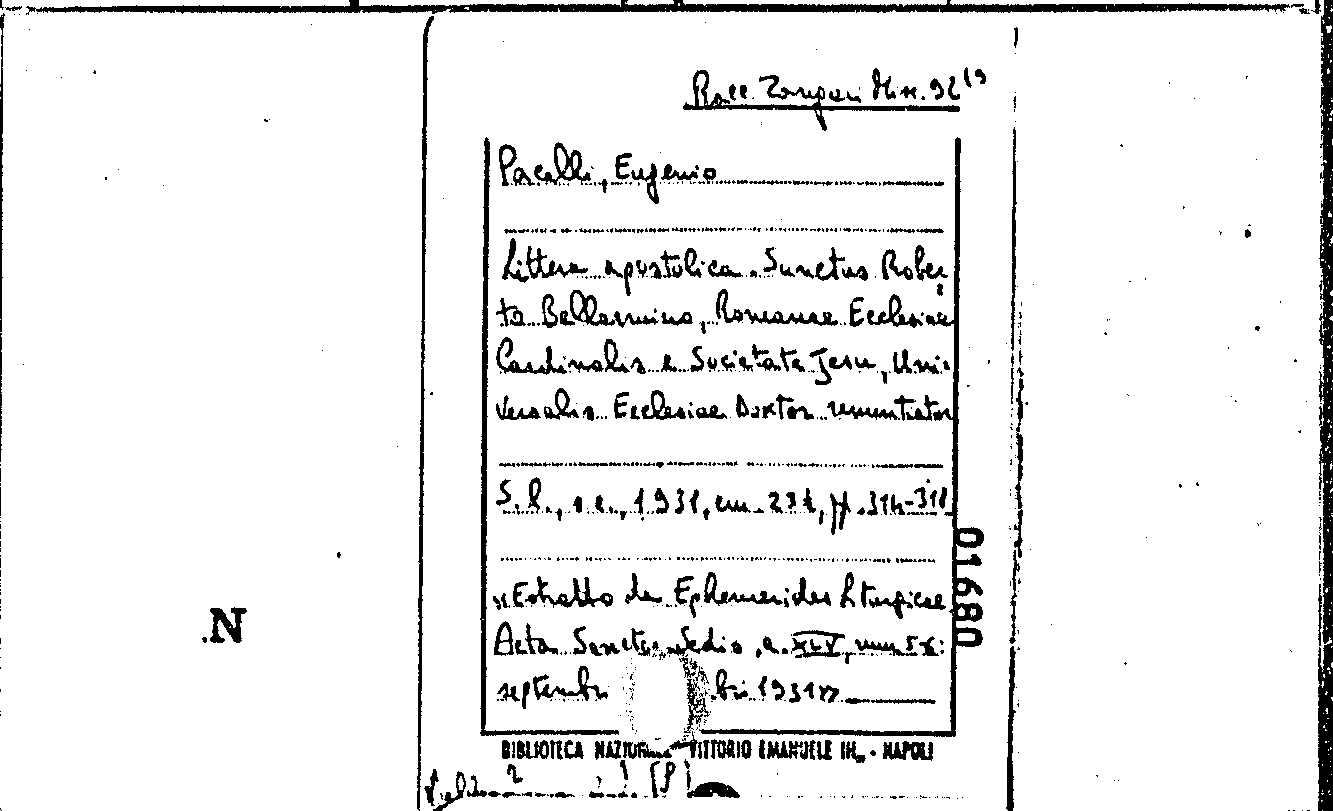 Racc. Zangari Misc. 92 (9
Pacelli, Eugenio
Littera apostolica. Sanctus Rober-
to Bellarmino, Romanae Ecclesiae
Cardinalis e Societate Jesu, Uni-
versalis Ecclesiae Doctor renuntiatur
S. l., s. e., 1931, cm. 23½, pp. 314-318
"Estratto da Ephemerides Liturgicae
Acta Sanctae Sedis, a. XLV,
septembri bri 1931"
01680
.N
BIBLIOTECA NAZIONA VITTORIO EMANUELE III - NAPOLI